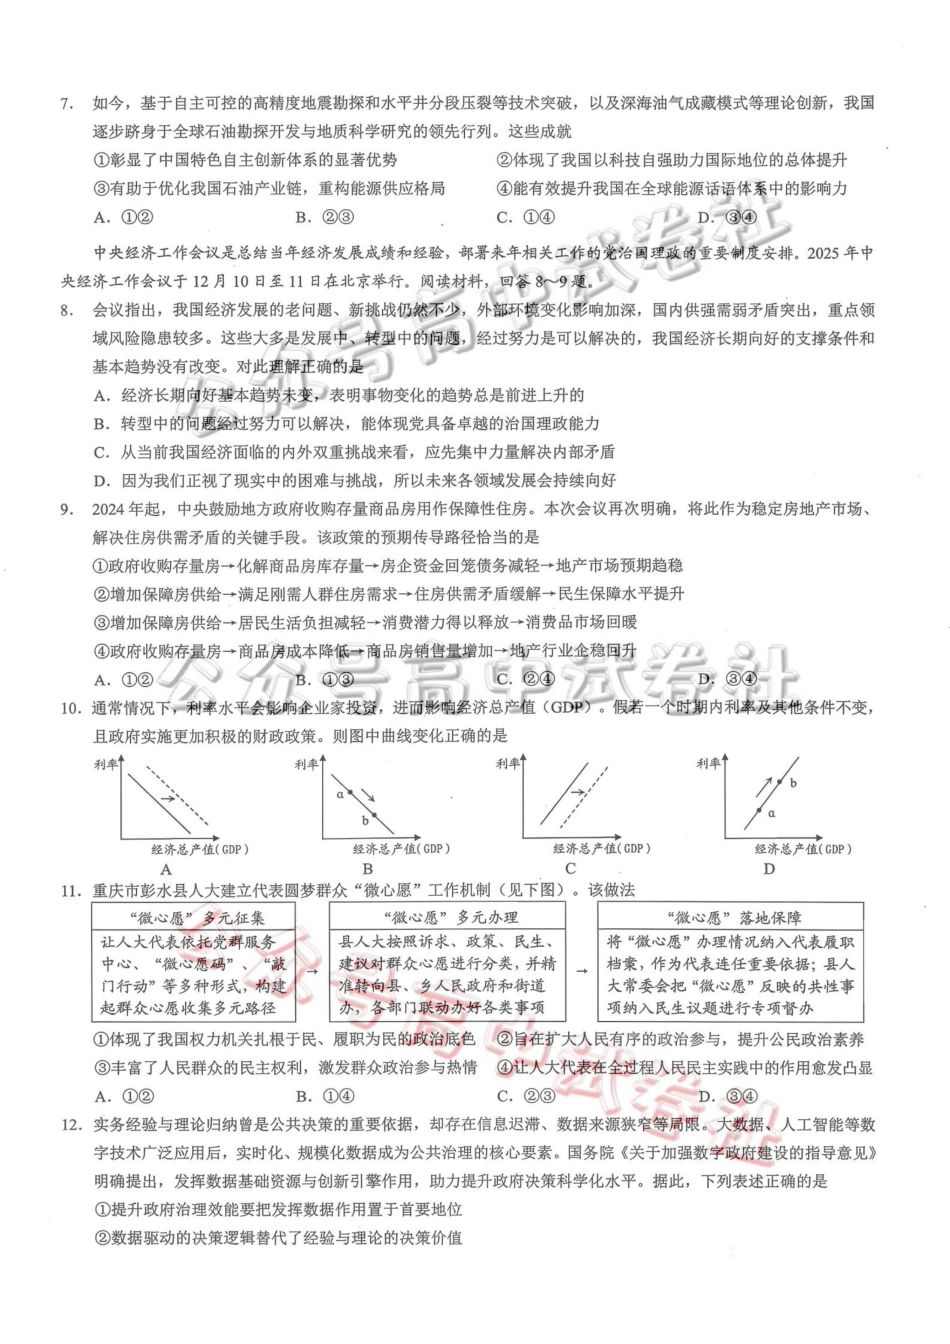 7． 如今，基于自主可控的高精度地震勘探和水平井分段压裂等技术突破，以及深海油气成藏模式等理论创新，我国
逐步跻身于全球石油勘探开发与地质科学研究的领先行列。这些成就
①彰显了中国特色自主创新体系的显著优势 ②体现了我国以科技自强助力国际地位的总体提升
③有助于优化我国石油产业链，重构能源供应格局 ④能有效提升我国在全球能源话语体系中的影响力
A．①② B．②③ C．①④ D．③④
中央经济工作会议是总结当年经济发展成绩和经验，部署来年相关工作的党治国理政的重要制度安排。2025 年中
央经济工作会议于 12 月 10 日至 11 日在北京举行。阅读材料，回答 8～9 题。
8． 会议指出，我国经济发展的老问题、新挑战仍然不少，外部环境变化影响加深，国内供强需弱矛盾突出，重点领
域风险隐患较多。这些大多是发展中、转型中的问题，经过努力是可以解决的，我国经济长期向好的支撑条件和
基本趋势没有改变。对此理解正确的是
A．经济长期向好基本趋势未变，表明事物变化的趋势总是前进上升的
B．转型中的问题经过努力可以解决，能体现党具备卓越的治国理政能力
C．从当前我国经济面临的内外双重挑战来看，应先集中力量解决内部矛盾
D．因为我们正视了现实中的困难与挑战，所以未来各领域发展会持续向好
9． 2024 年起，中央鼓励地方政府收购存量商品房用作保障性住房。本次会议再次明确，将此作为稳定房地产市场、
解决住房供需矛盾的关键手段。该政策的预期传导路径恰当的是
①政府收购存量房→化解商品房库存量→房企资金回笼债务减轻→地产市场预期趋稳
②增加保障房供给→满足刚需人群住房需求→住房供需矛盾缓解→民生保障水平提升
③增加保障房供给→居民生活负担减轻→消费潜力得以释放→消费品市场回暖
④政府收购存量房→商品房成本降低→商品房销售量增加→地产行业企稳回升
A．①② B．①③ C．②④ D．③④
10．通常情况下，利率水平会影响企业家投资，进而影响经济总产值（GDP）。假若一个时期内利率及其他条件不变，
且政府实施更加积极的财政政策。则图中曲线变化正确的是
利率 利率 利率 利率
a b a b
经济总产值(GDP) 经济总产值(GDP) 经济总产值(GDP) 经济总产值(GDP)
A B C D
11．重庆市彭水县人大建立代表圆梦群众“微心愿”工作机制（见下图）。该做法
“微心愿”多元征集 “微心愿”多元办理 “微心愿”落地保障
让人大代表依托党群服务 县人大按照诉求、政策、民生、 将“微心愿”办理情况纳入代表履职
中心、“微心愿码”、“敲 建议对群众心愿进行分类，并精 档案，作为代表连任重要依据；县人
门行动”等多种形式，构建 准转向县、乡人民政府和街道 大常委会把“微心愿”反映的共性事
起群众心愿收集多元路径 办，各部门联动办好各类事项 项纳入民生议题进行专项督办
①体现了我国权力机关扎根于民、履职为民的政治底色 ②旨在扩大人民有序的政治参与，提升公民政治素养
③丰富了人民群众的民主权利，激发群众政治参与热情 ④让人大代表在全过程人民民主实践中的作用愈发凸显
A．①② B．①④ C．②③ D．③④
12．实务经验与理论归纳曾是公共决策的重要依据，却存在信息迟滞、数据来源狭窄等局限。大数据、人工智能等数
字技术广泛应用后，实时化、规模化数据成为公共治理的核心要素。国务院《关于加强数字政府建设的指导意见》
明确提出，发挥数据基础资源与创新引擎作用，助力提升政府决策科学化水平。据此，下列表述正确的是
①提升政府治理效能要把发挥数据作用置于首要地位
②数据驱动的决策逻辑替代了经验与理论的决策价值
公众号高中试卷社
公众号高中试卷社
公众号高中试卷社